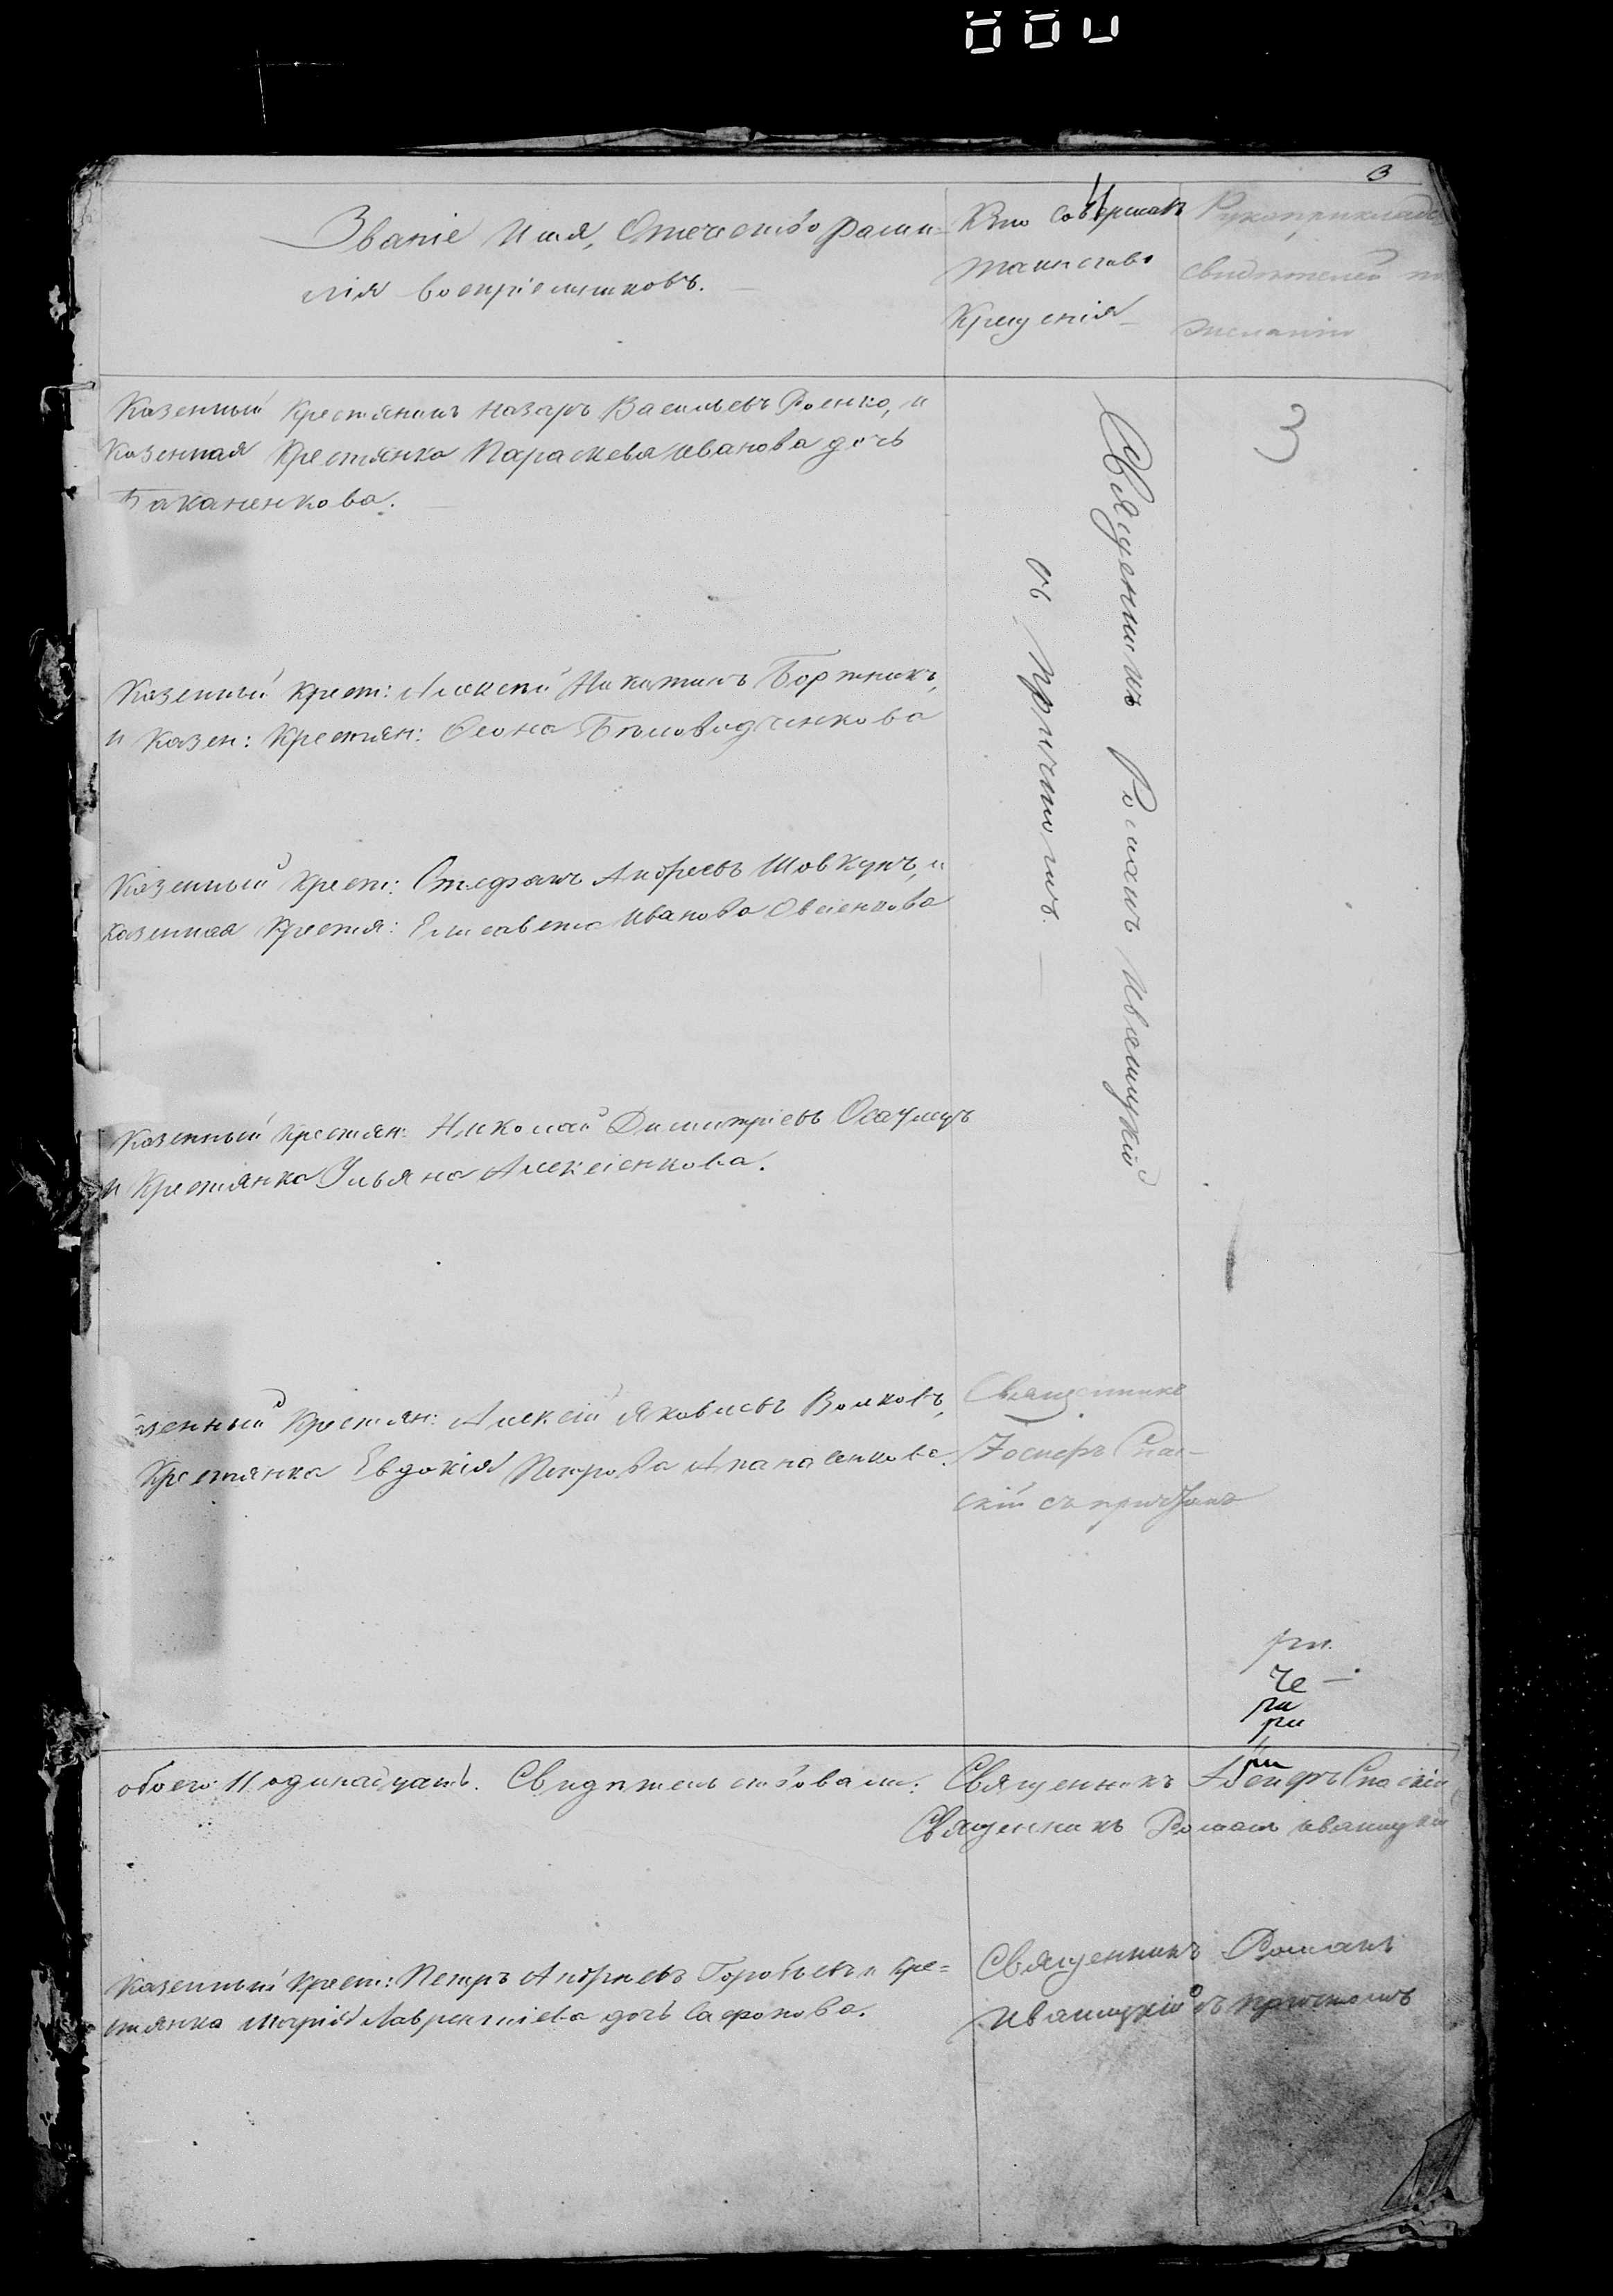 3
Званіе Имя, Отечество Фами=
лія воспріемниковъ.
Кто совершалъ
таинство
Крещенія
Рукоприкладс
свидѣтелей по
желанію
Казенный Крестянинъ Назаръ Васильевъ Роенко, и
Казенная Крестянка Параскева Иванова дочь
Баканенкова.
3
Священникъ Романъ Иваницкій
съ Причтомъ.
Казенный Крест: Алексѣй Никитинъ Бортникъ,
и Казен: Крестян: Ѳеона Бѣловодченкова
Казенный Крест: Стефанъ Андреевъ Шовкунъ, и
Казенная Крестя: Елисавета Иванова Овсіенкова
Казенный Крестян: Николай Димитріевъ
и Крестянка Ульяна Алексіенкова.
зенный Крестян: Алексій Яковлевъ Волковъ,
Крестянка Евдокія Петрова Апанасенкова.
Священникъ
Іосифъ Спас-
скій съ причтомъ
ри.
че —
ри
ри
ри
обоего 11 одинадцать. Свидѣтельствовали: Священникъ Іосифъ Спаскій
Священникъ Романъ Иваницкій
Казенный Крест: Петръ Андреевъ Горобьевъ и Кре=
стянка Марія Лаврентіева дочь Сафонова.
Священникъ Романъ
Иваницкій съ причтомъ